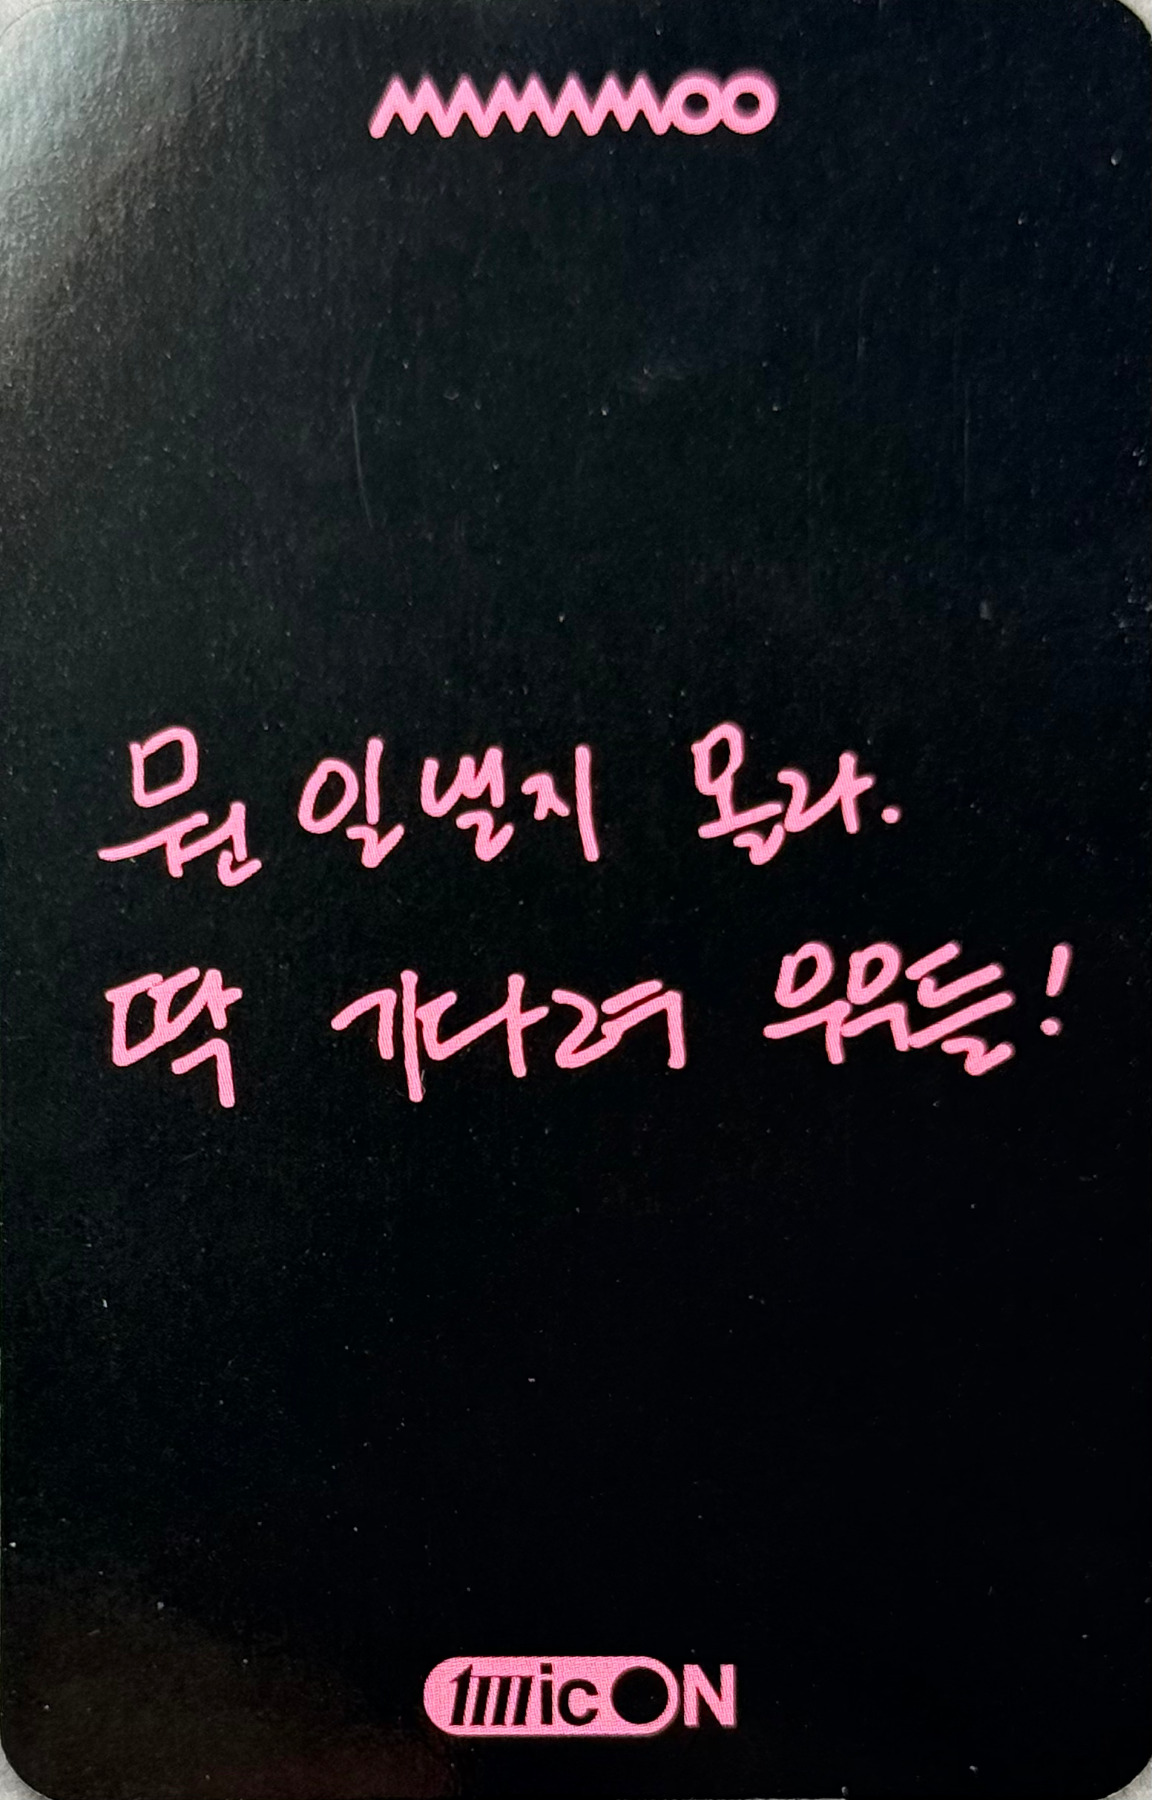 MAMAMOO
뭔 일낼지 몰라.
딱 기다려 무무들!
1MicON